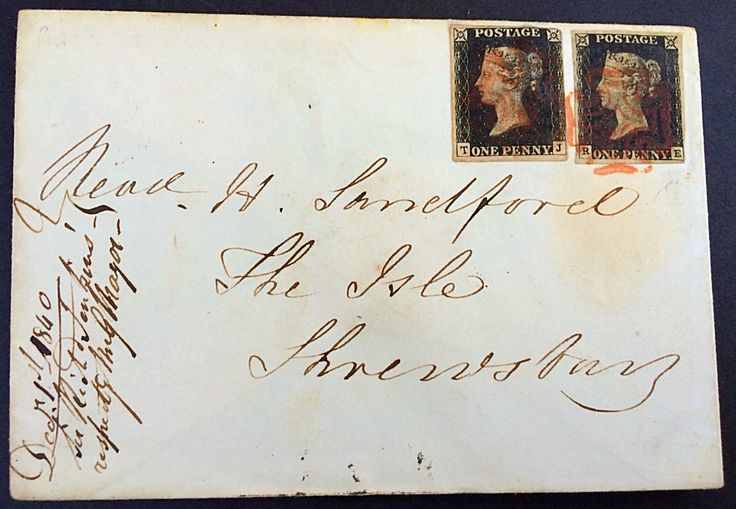 POSTAGE
T ONE PENNY J
POSTAGE
R ONE PENNY E
Revd. H. Sandford
The Isle
Shrewsbury
Decr. 1st 1840